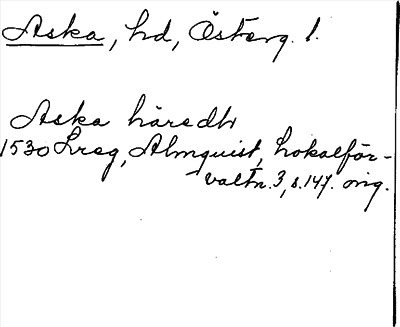 Aska, hd, Österg. l.
Aska häredh
1530 Lreg, Almquist, Lokalför-
valtn. 3, s. 147. orig.